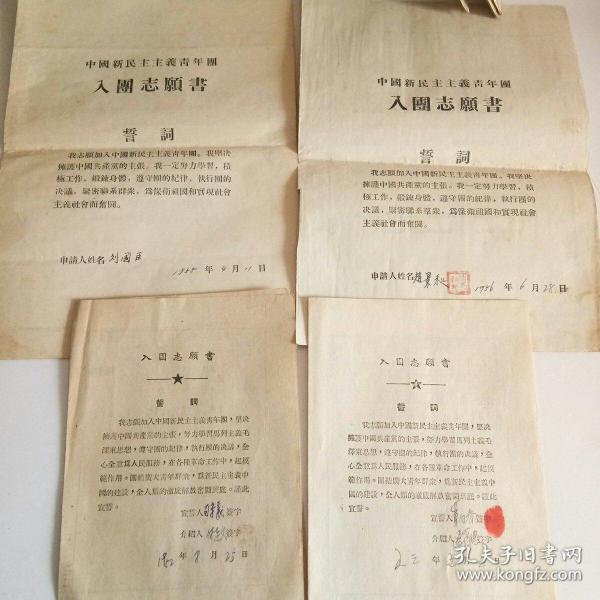 中國新民主主義青年團
入團志願書
誓詞
我志願加入中國新民主主義青年團。我堅决
擁護中國共產黨的主張。我一定努力學習，積
極工作，鍛鍊身體，遵守團的紀律，執行團的
决議，緊密聯系群衆，爲保衛祖國和實現社會
主義社會而奮鬥。
申請人姓名 刘國臣
1955 年 4 月 11 日
中國新民主主義青年團
入團志願書
誓詞
我志願加入中國新民主主義青年團。我堅决
擁護中國共產黨的主張。我一定努力學習，積
極工作，鍛鍊身體，遵守團的紀律，執行團的
决議，緊密聯系羣衆，爲保衛祖國和實現社會
主義社會而奮鬥。
申請人姓名
1956 年 6 月 28 日
入團志願書
誓詞
我志願加入中國新民主主義青年團，堅决
擁護中國共產黨的主張，努力學習馬列主義毛
澤東思想，遵守團的紀律，執行團的決議，全
心全意爲人民服務，在各種革命工作中，起模
範作用。團結廣大青年群衆，爲新民主主義中
國的建設，全人類的澈底解放奮鬥到底。謹此
宣誓。
宣誓人 簽字
介紹人 簽字
1952 年 7 月 25 日
入團志願書
誓詞
我志願加入中國新民主主義青年團，堅决
擁護中國共產黨的主張，努力學習馬列主義毛
澤東思想，遵守團的紀律，執行團的決議，全
心全意爲人民服務，在各種革命工作中，起模
範作用。團結廣大青年群衆，爲新民主主義中
國的建設，全人類的澈底解放奮鬥到底。謹此
宣誓。
宣誓人 簽字
介紹人 簽字
五三 年
孔夫子旧书网
www.kongfz.com